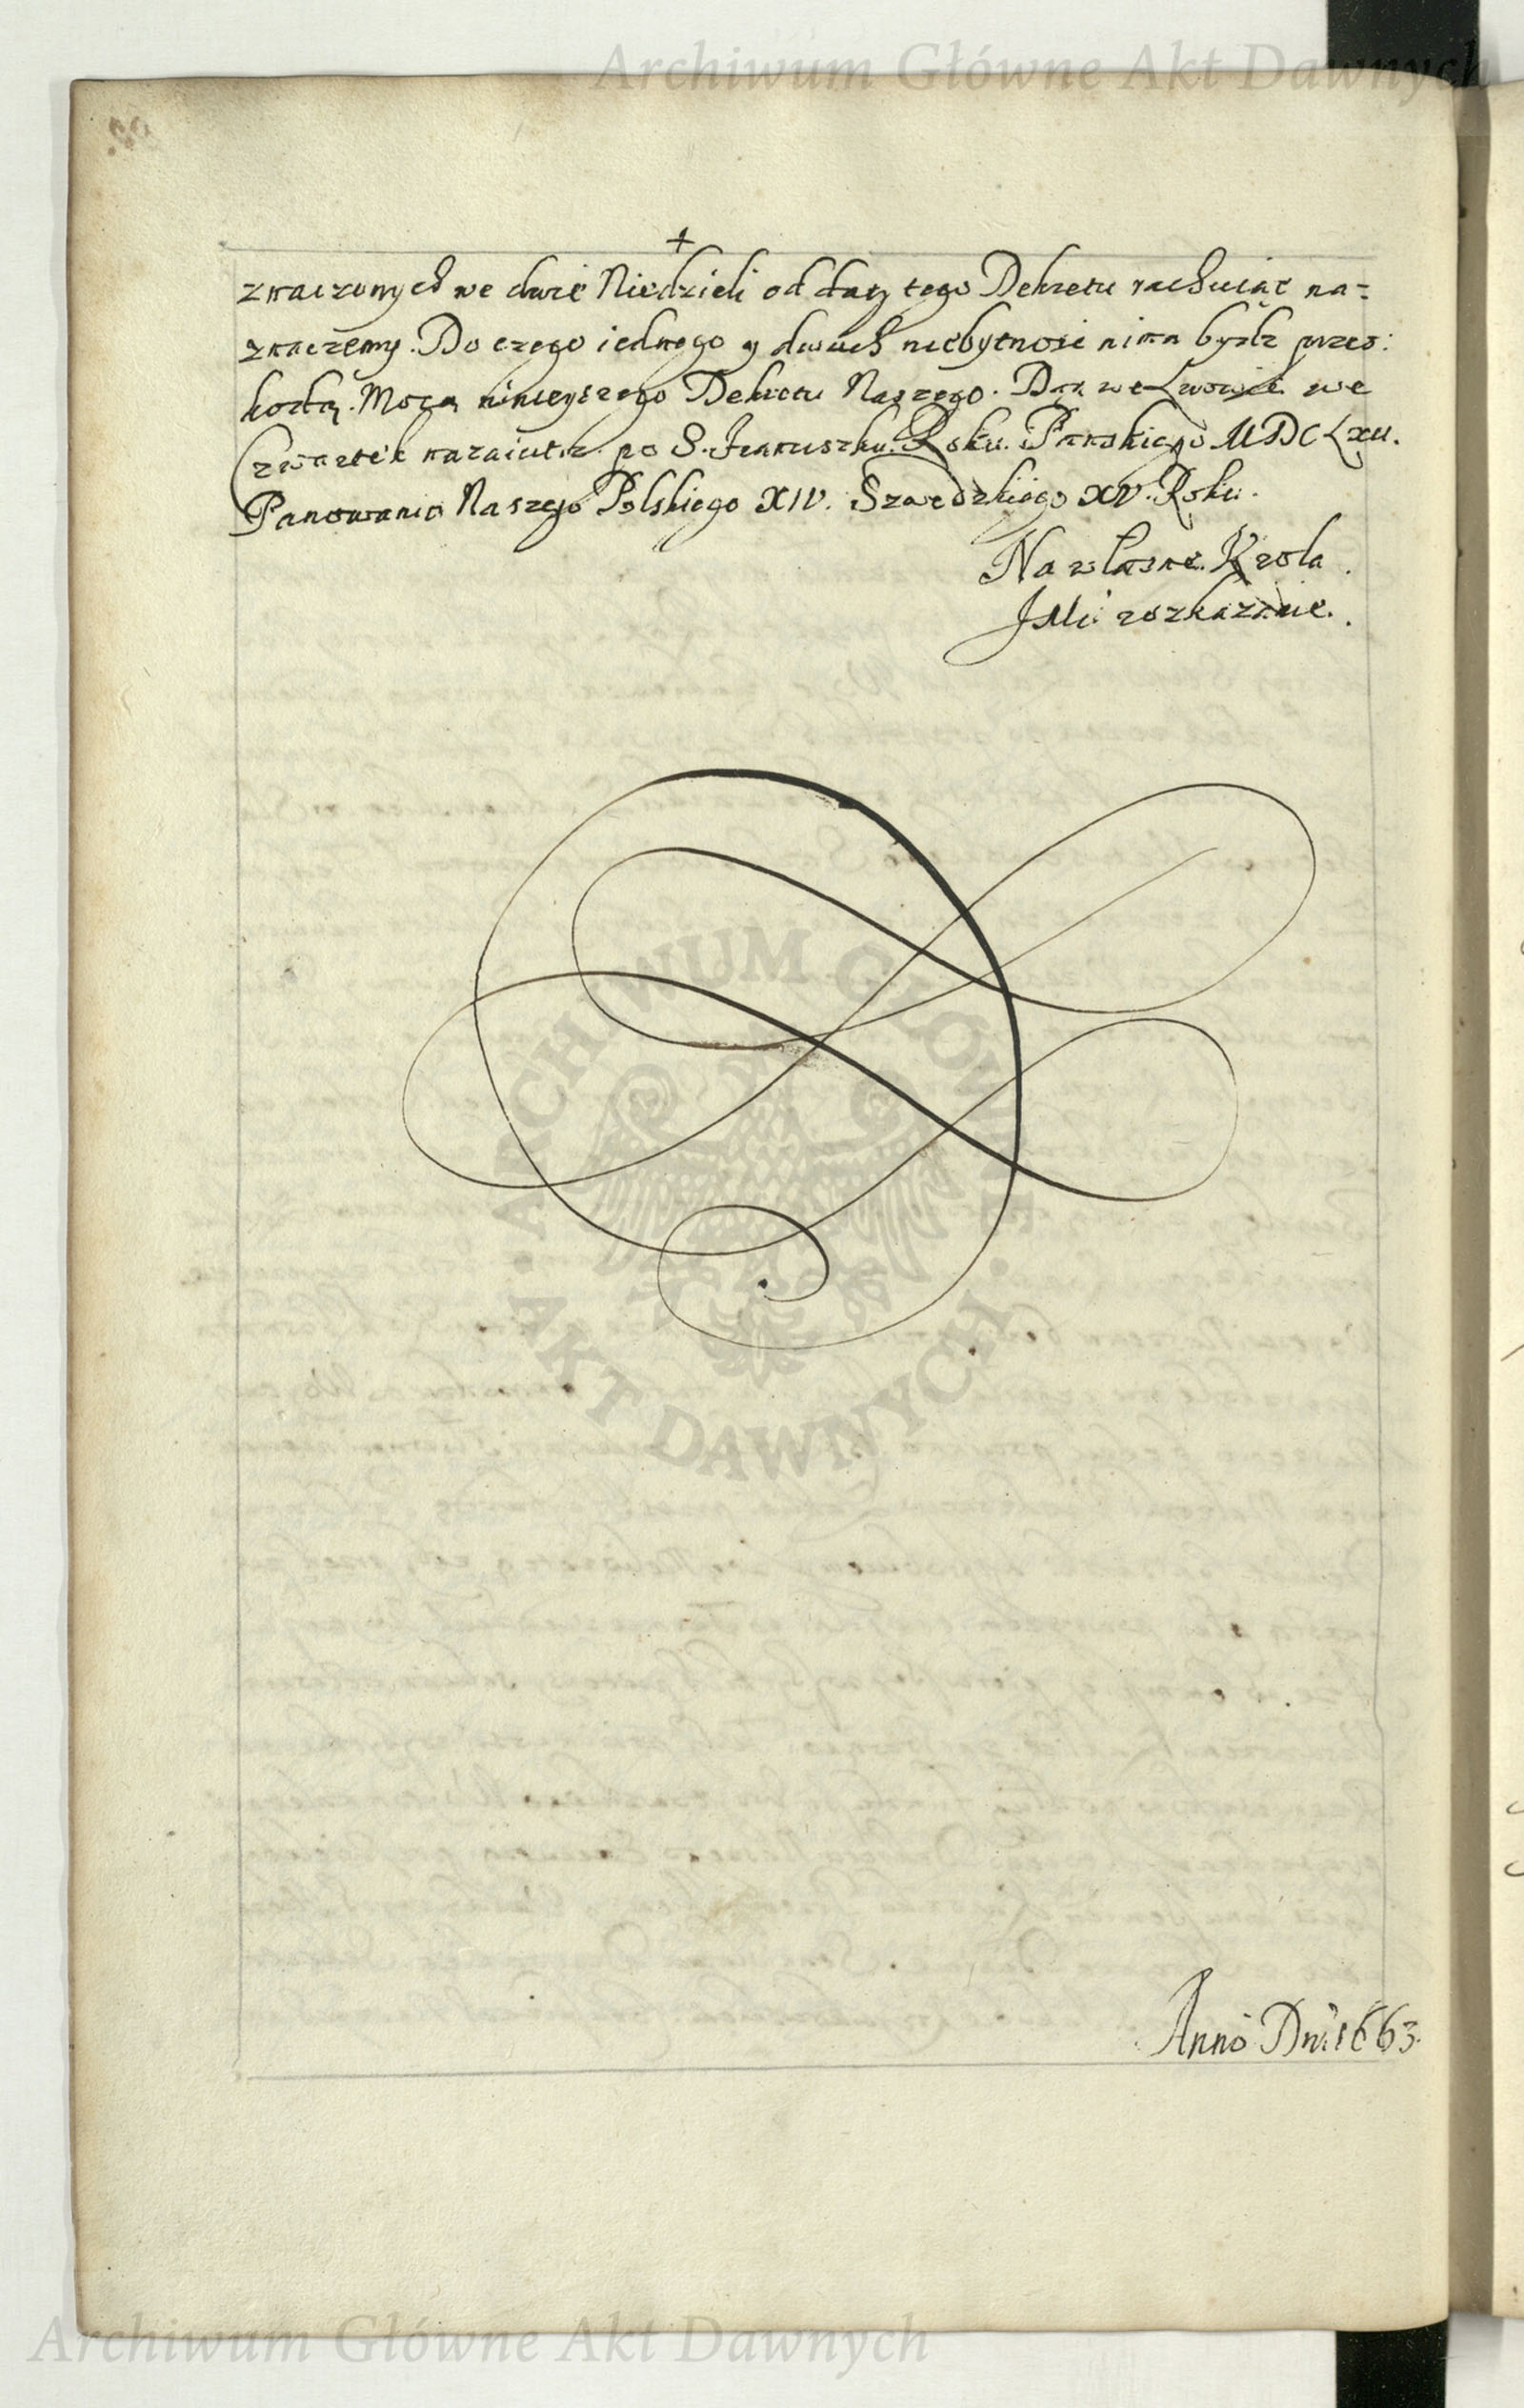 Archiwum Główne Akt Dawnych
+
znaczonych we dwie Niedzieli od daty tego Dekretu rachuiąc na=
znaczemy. Do czego iednego y dwuch niebytnosć nima bydz przes:
kodą. Mocą ninieyszego Dekretu Naszego. Dan we Lwowie we
Czwartek nazaiutrz po S. Franciszku. Roku Panskiego MDCLXII.
Panowania Naszego Polskiego XIV. Szwedzkiego XV. Roku.
Na własne Krola
JMci rozkazanie.
ARCHIWUM GŁÓWNE
AKT DAWNYCH
Anno Dni 1663.
Archiwum Główne Akt Dawnych